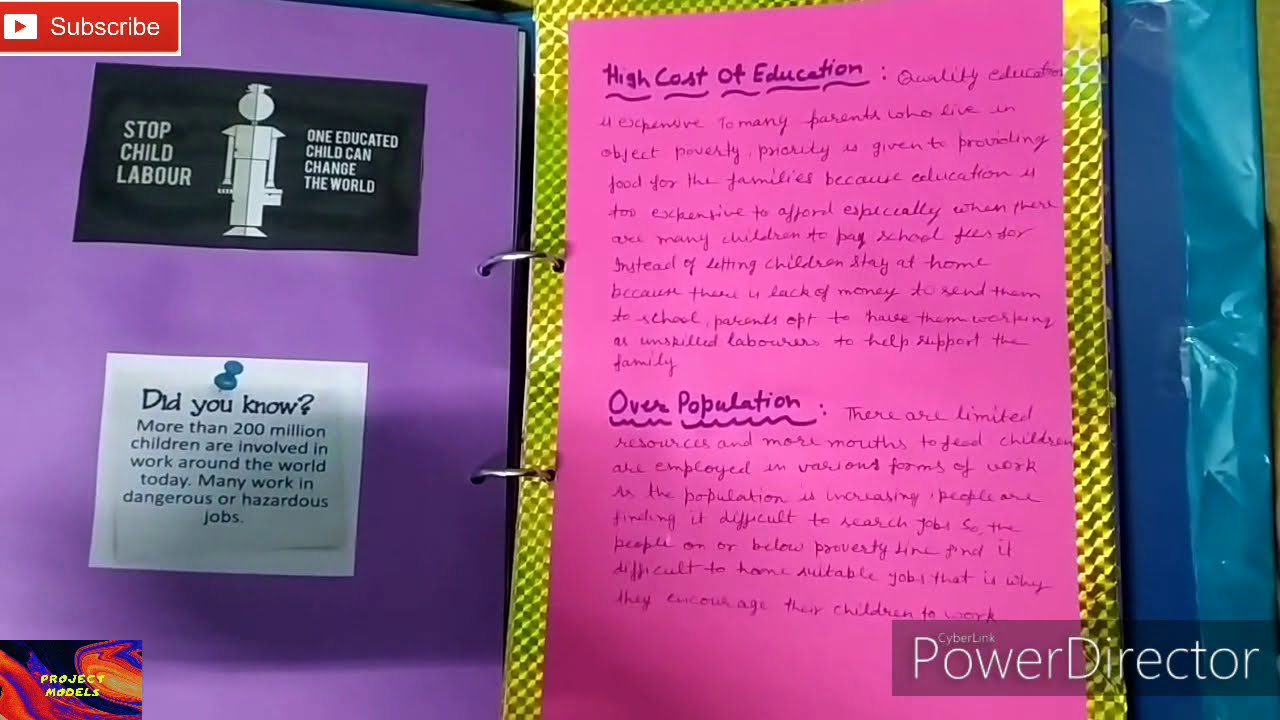 Subscribe
STOP
CHILD
LABOUR
ONE EDUCATED
CHILD CAN
CHANGE
THE WORLD
Did you know?
More than 200 million
children are involved in
work around the world
today. Many work in
dangerous or hazardous
jobs.
PROJECT
MODELS
High Cost Of Education : Quality education
is expensive To many parents who live in
object poverty, priority is given to providing
food for the families because education is
too expensive to afford especially when there
are many children to pay school fees for
Instead of letting children stay at home
because there is lack of money to send them
to school, parents opt to have them working
as unskilled labourers to help support the
family
Over Population : There are limited
resources and more mouths to feed children
are employed in various forms of work
As the population is increasing, people are
finding it difficult to search jobs So, the
people on or below proverty line find it
difficult to home suitable jobs that is why
they encourage their children to work
CyberLink
PowerDirector